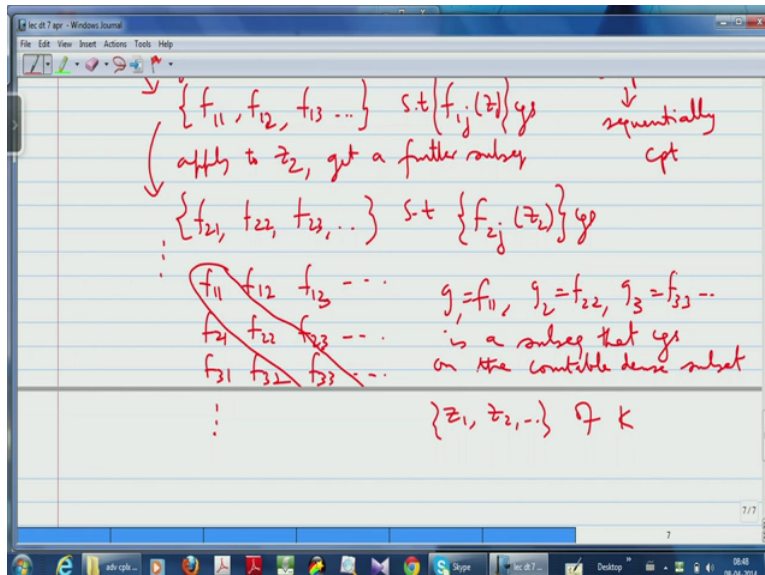 lec dt 7 apr - Windows Journal
File Edit View Insert Actions Tools Help
{f₁₁, f₁₂, f₁₃ ...} s.t {f₁ⱼ(z₁)} cgs
↓
sequentially
cpt
apply to z₂, get a further subseq
{f₂₁, f₂₂, f₂₃, ..} s.t {f₂ⱼ(z₂)} cgs
f₁₁ f₁₂ f₁₃ ....
f₂₁ f₂₂ f₂₃ ....
f₃₁ f₃₂ f₃₃ ....
g₁=f₁₁, g₂=f₂₂, g₃=f₃₃ ...
is a subseq that cgs
on the countable dense subset
{z₁, z₂, ..} of K
7/7
7
adv cplx ...
Skype
lec dt 7 ...
Desktop
08:48
08-04-2014